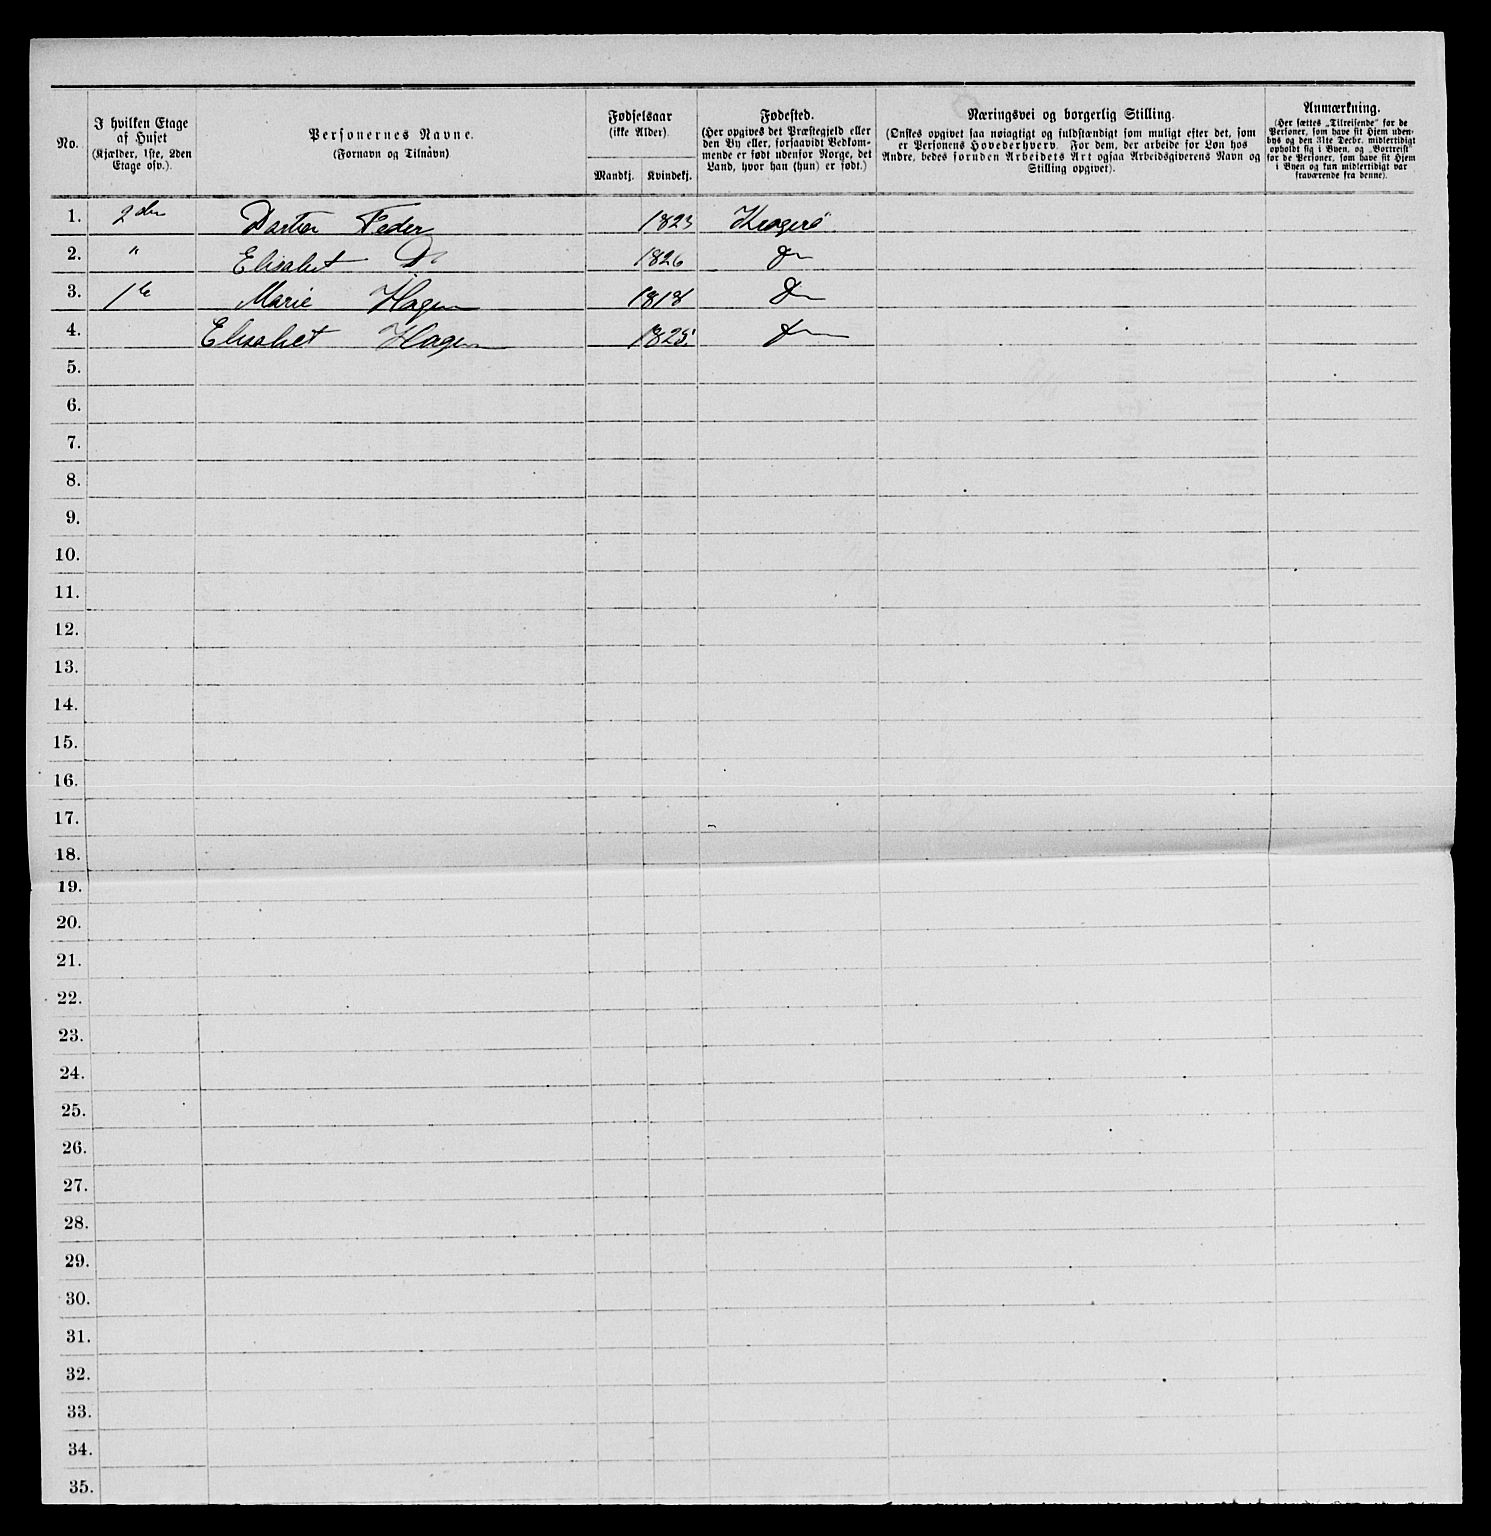 No.
I hvilken Etage af Huset (Kjælder, 1ste, 2den Etage osv.).
Personernes Navne. (Fornavn og Tilnavn)
Fødselsaar (ikke Alder).
Mandkj. Kvindekj.
Fødested. (Her opgives det Præstegjeld eller den By eller, forsaavidt Vedkommende er født udenfor Norge, det Land, hvor han (hun) er født.)
Næringsvei og borgerlig Stilling. (Ønskes opgivet saa nøiagtigt og fuldstændigt som muligt efter det, som er Personens Hovederhverv. For dem, der arbeide for Løn hos Andre, bedes foruden Arbeidets Art ogsaa Arbeidsgiverens Navn og Stilling opgivet).
Anmærkning. (Her sættes „Tilreisende" for de Personer, som have sit Hjem udenbys og den 31te Decbr. midlertidigt opholdt sig i Byen, og „Bortreist" for de Personer, som have sit Hjem i Byen og kun midlertidigt var fraværende fra denne).
1. 2den Feder 1823 Kragerø
2. " Elisabet Do 1826 Do
3. 1ste Marie Hagen 1818 Do
4. Elisabet Hagen 1825 Do
5.
6.
7.
8.
9.
10.
11.
12.
13.
14.
15.
16.
17.
18.
19.
20.
21.
22.
23.
24.
25.
26.
27.
28.
29.
30.
31.
32.
33.
34.
35.